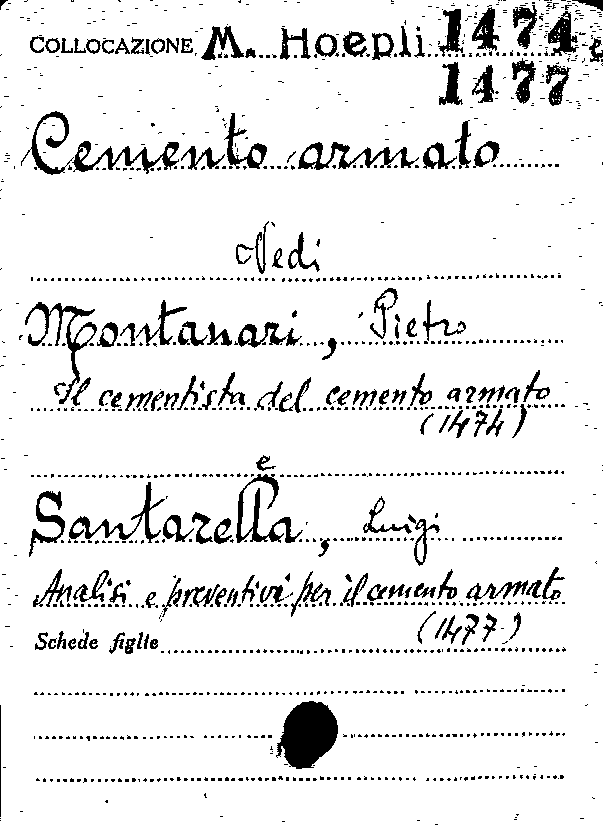 COLLOCAZIONE M. Hoepli 1474 e
1477
Cemento armato
Vedi
Montanari, Pietro
Il cementista del cemento armato
(1474)
e
Santarella, Luigi
Analisi e preventivi per il cemento armato
(1477)
Schede figlie